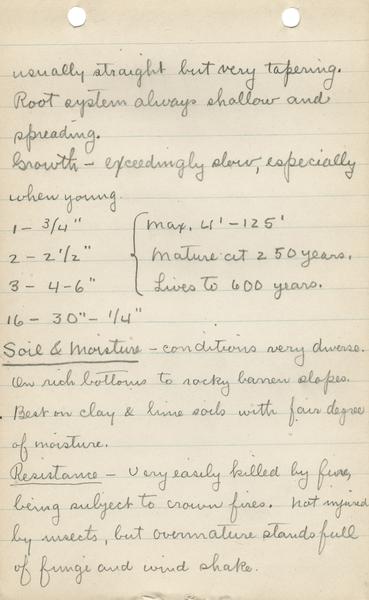 usually straight but very tapering.
Root system always shallow and
spreading.
Growth - exceedingly slow, especially
when young.
1 - 3/4" { Max. 4' - 125'
2 - 2 1/2" Mature at 250 years.
3 - 4-6" Lives to 600 years.
16 - 30" - 1/4"
Soil & Moisture - conditions very diverse.
On rich bottoms to rocky barren slopes.
Best on clay & lime soils with fair degree
of moisture.
Resistance - Very easily killed by fire,
being subject to crown fires. Not injured
by insects, but overmature stands full
of fungi and wind shake.